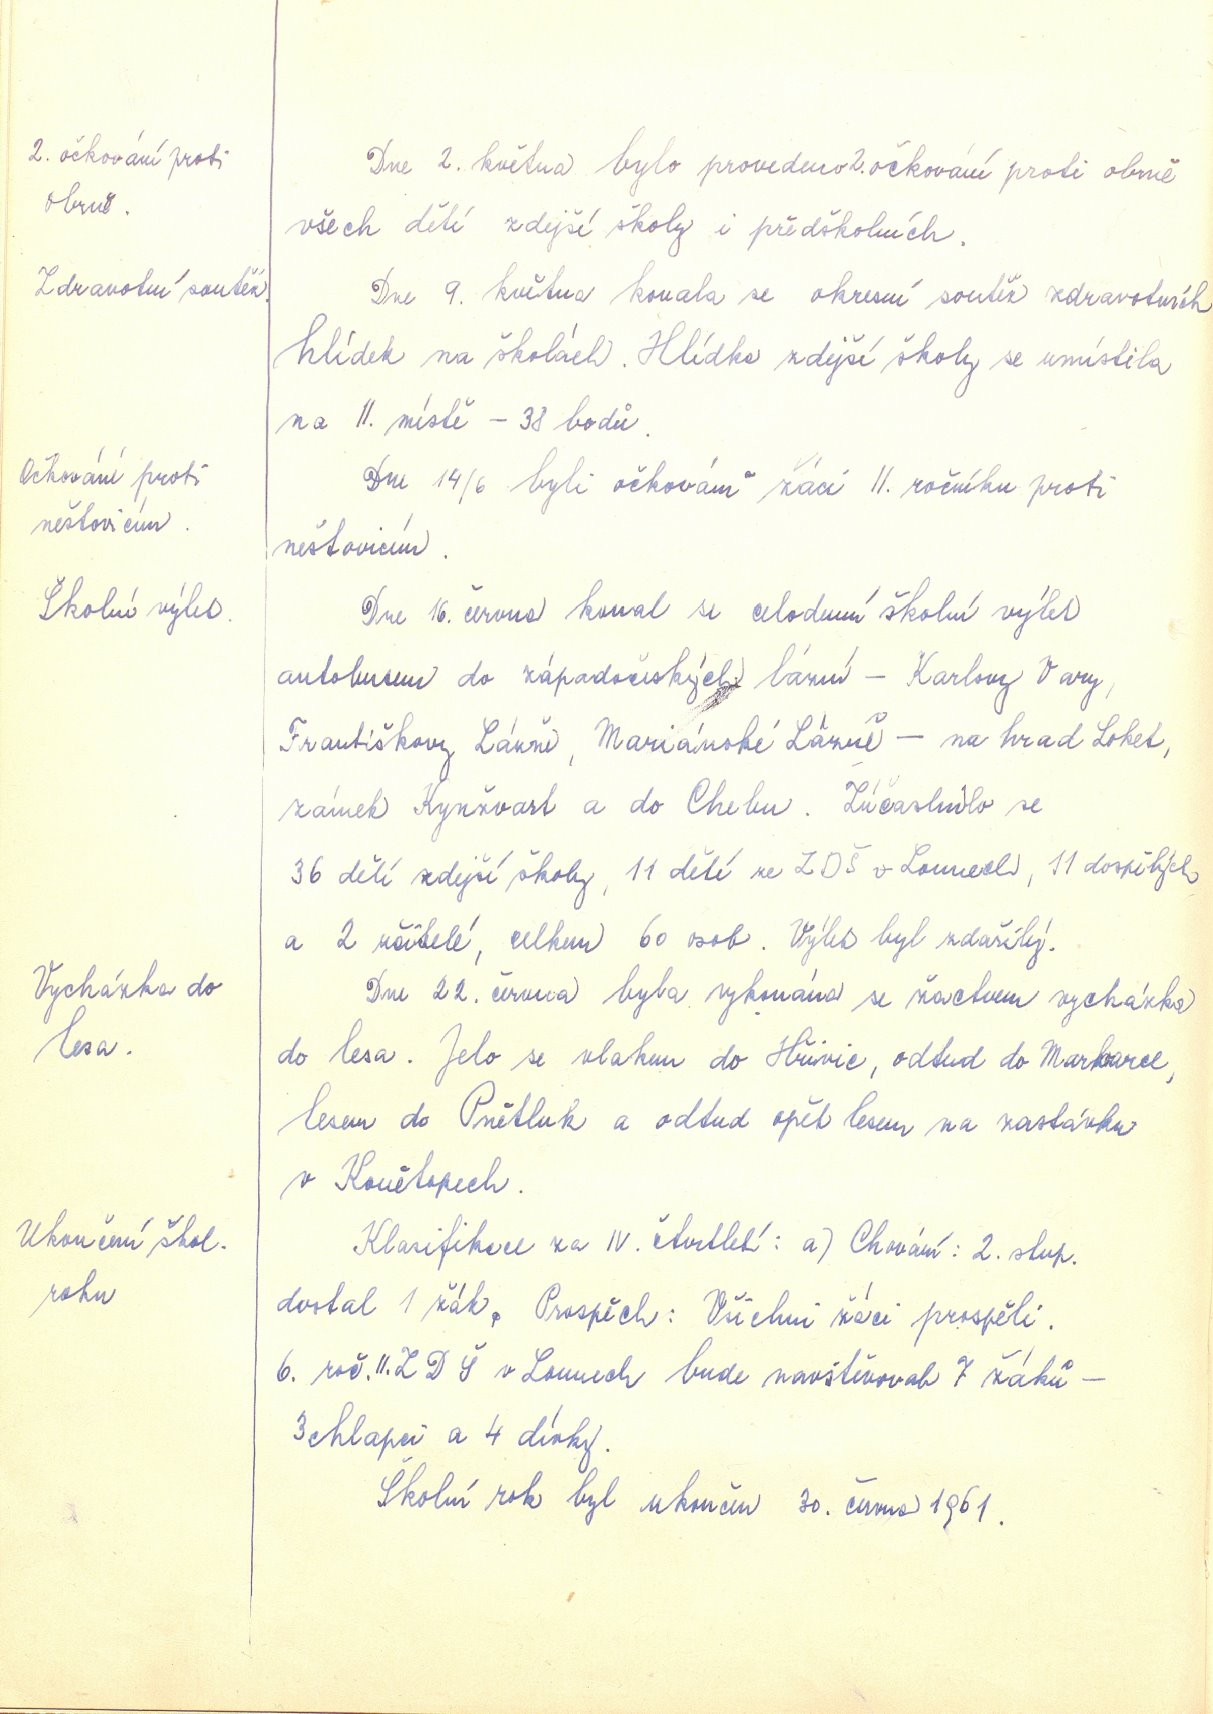 2. očkování proti
obrně.
Dne 2. května bylo provedeno 2. očkování proti obrně
všech dětí zdejší školy i předškolních.
Zdravotní soutěž.
Dne 9. května konala se okresní soutěž zdravotních
hlídek na školách. Hlídka zdejší školy se umístila
na 11. místě – 38 bodů.
Očkování proti
neštovicím.
Dne 14/6 byli očkováni žáci II. ročníku proti
neštovicím.
Školní výlet.
Dne 16. června konal se celodenní školní výlet
autobusem do západočeských lázní – Karlovy Vary,
Františkovy Lázně, Mariánské Lázně – na hrad Loket,
zámek Kynžvart a do Chebu. Zúčastnilo se
36 dětí zdejší školy, 11 dětí ze ZDŠ v Lounech, 11 dospělých
a 2 učitelé, celkem 60 osob. Výlet byl zdařilý.
Vycházka do
lesa.
Dne 22. června byla vykonána se žactvem vycházka
do lesa. Jelo se vlakem do Hřivic, odtud do Markvarce,
lesem do Pnětluk a odtud opět lesem na zastávku
v Konětopech.
Ukončení škol.
roku
Klasifikace za IV. čtvrtletí: a) Chování: 2. stup.
dostal 1 žák. Prospěch: Všichni žáci prospěli.
6. roč. II. ZDŠ v Lounech bude navštěvovat 7 žáků –
3 chlapci a 4 dívky.
Školní rok byl ukončen 30. června 1961.